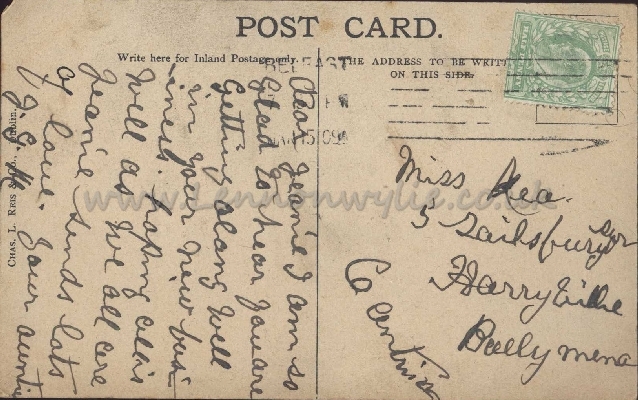 POST CARD.
Write here for Inland Postage only.
THE ADDRESS TO BE WRITT
ON THIS SIDE.
BELFAST
15 09
Dear Jeenie I am so
Glad to hear you are
Getting along well
in your new busi
iness. hoping all is
well as we all are
Jeanie sends lots
of love. your auntie
J. S. M.
Miss Rea.
5 Sailsbury
Harryville
Ballymena
Co antrim
CHAS. L. REIS & CO., Dublin.
www.Lennonwylie.co.uk